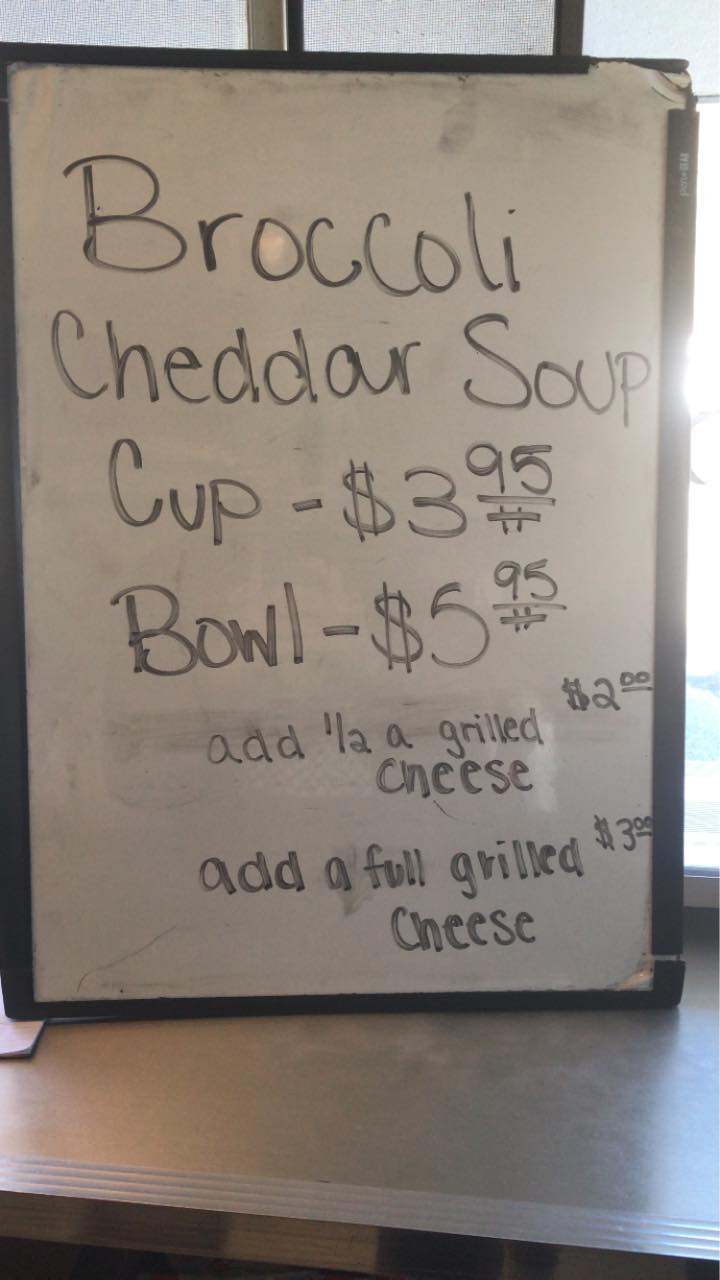 Broccoli
Cheddar Soup
Cup - $3 95
Bowl - $5 95
$2 00
add 1/2 a grilled
cheese
$3 00
add a full grilled
Cheese